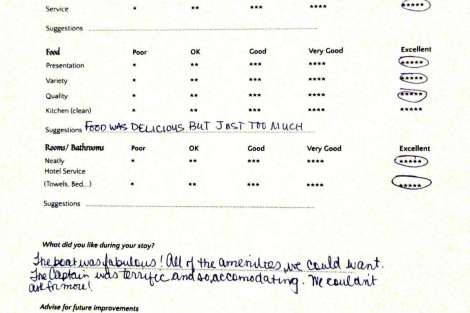 Service * ** *** **** *****
Suggestions
Food Poor OK Good Very Good Excellent
Presentation * ** *** **** *****
Variety * ** *** **** *****
Quality * ** *** **** *****
Kitchen (clean) * ** *** **** *****
Suggestions FOOD WAS DELICIOUS BUT JUST TOO MUCH
Rooms/ Bathrooms Poor OK Good Very Good Excellent
Neatly * ** *** **** *****
Hotel Service
(Towels, Bed...) * ** *** **** *****
Suggestions
What did you like during your stay?
The boat was fabulous! All of the amenities we could want.
The Captain was terrific and so accomodating. We couldn't
ask for more!
Advise for future improvements